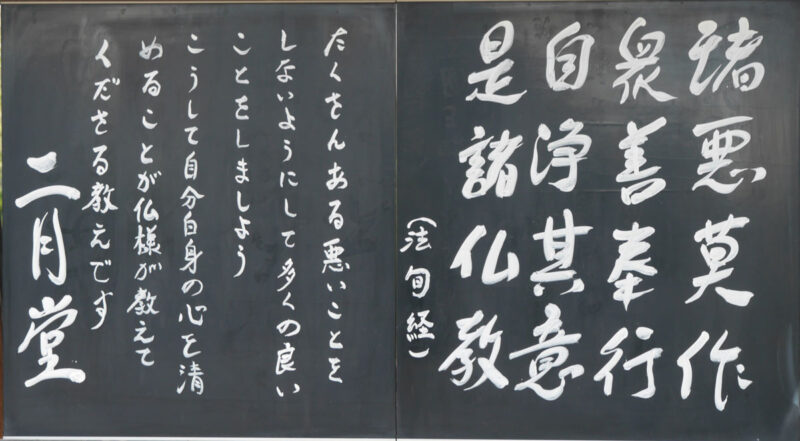 諸悪莫作
衆善奉行
自浄其意
是諸仏教
(法句経)
たくさんある悪いことを
しないようにして多くの良い
ことをしましょう
こうして自分自身の心を清
めることが仏様が教えて
くださる教えです
二月堂